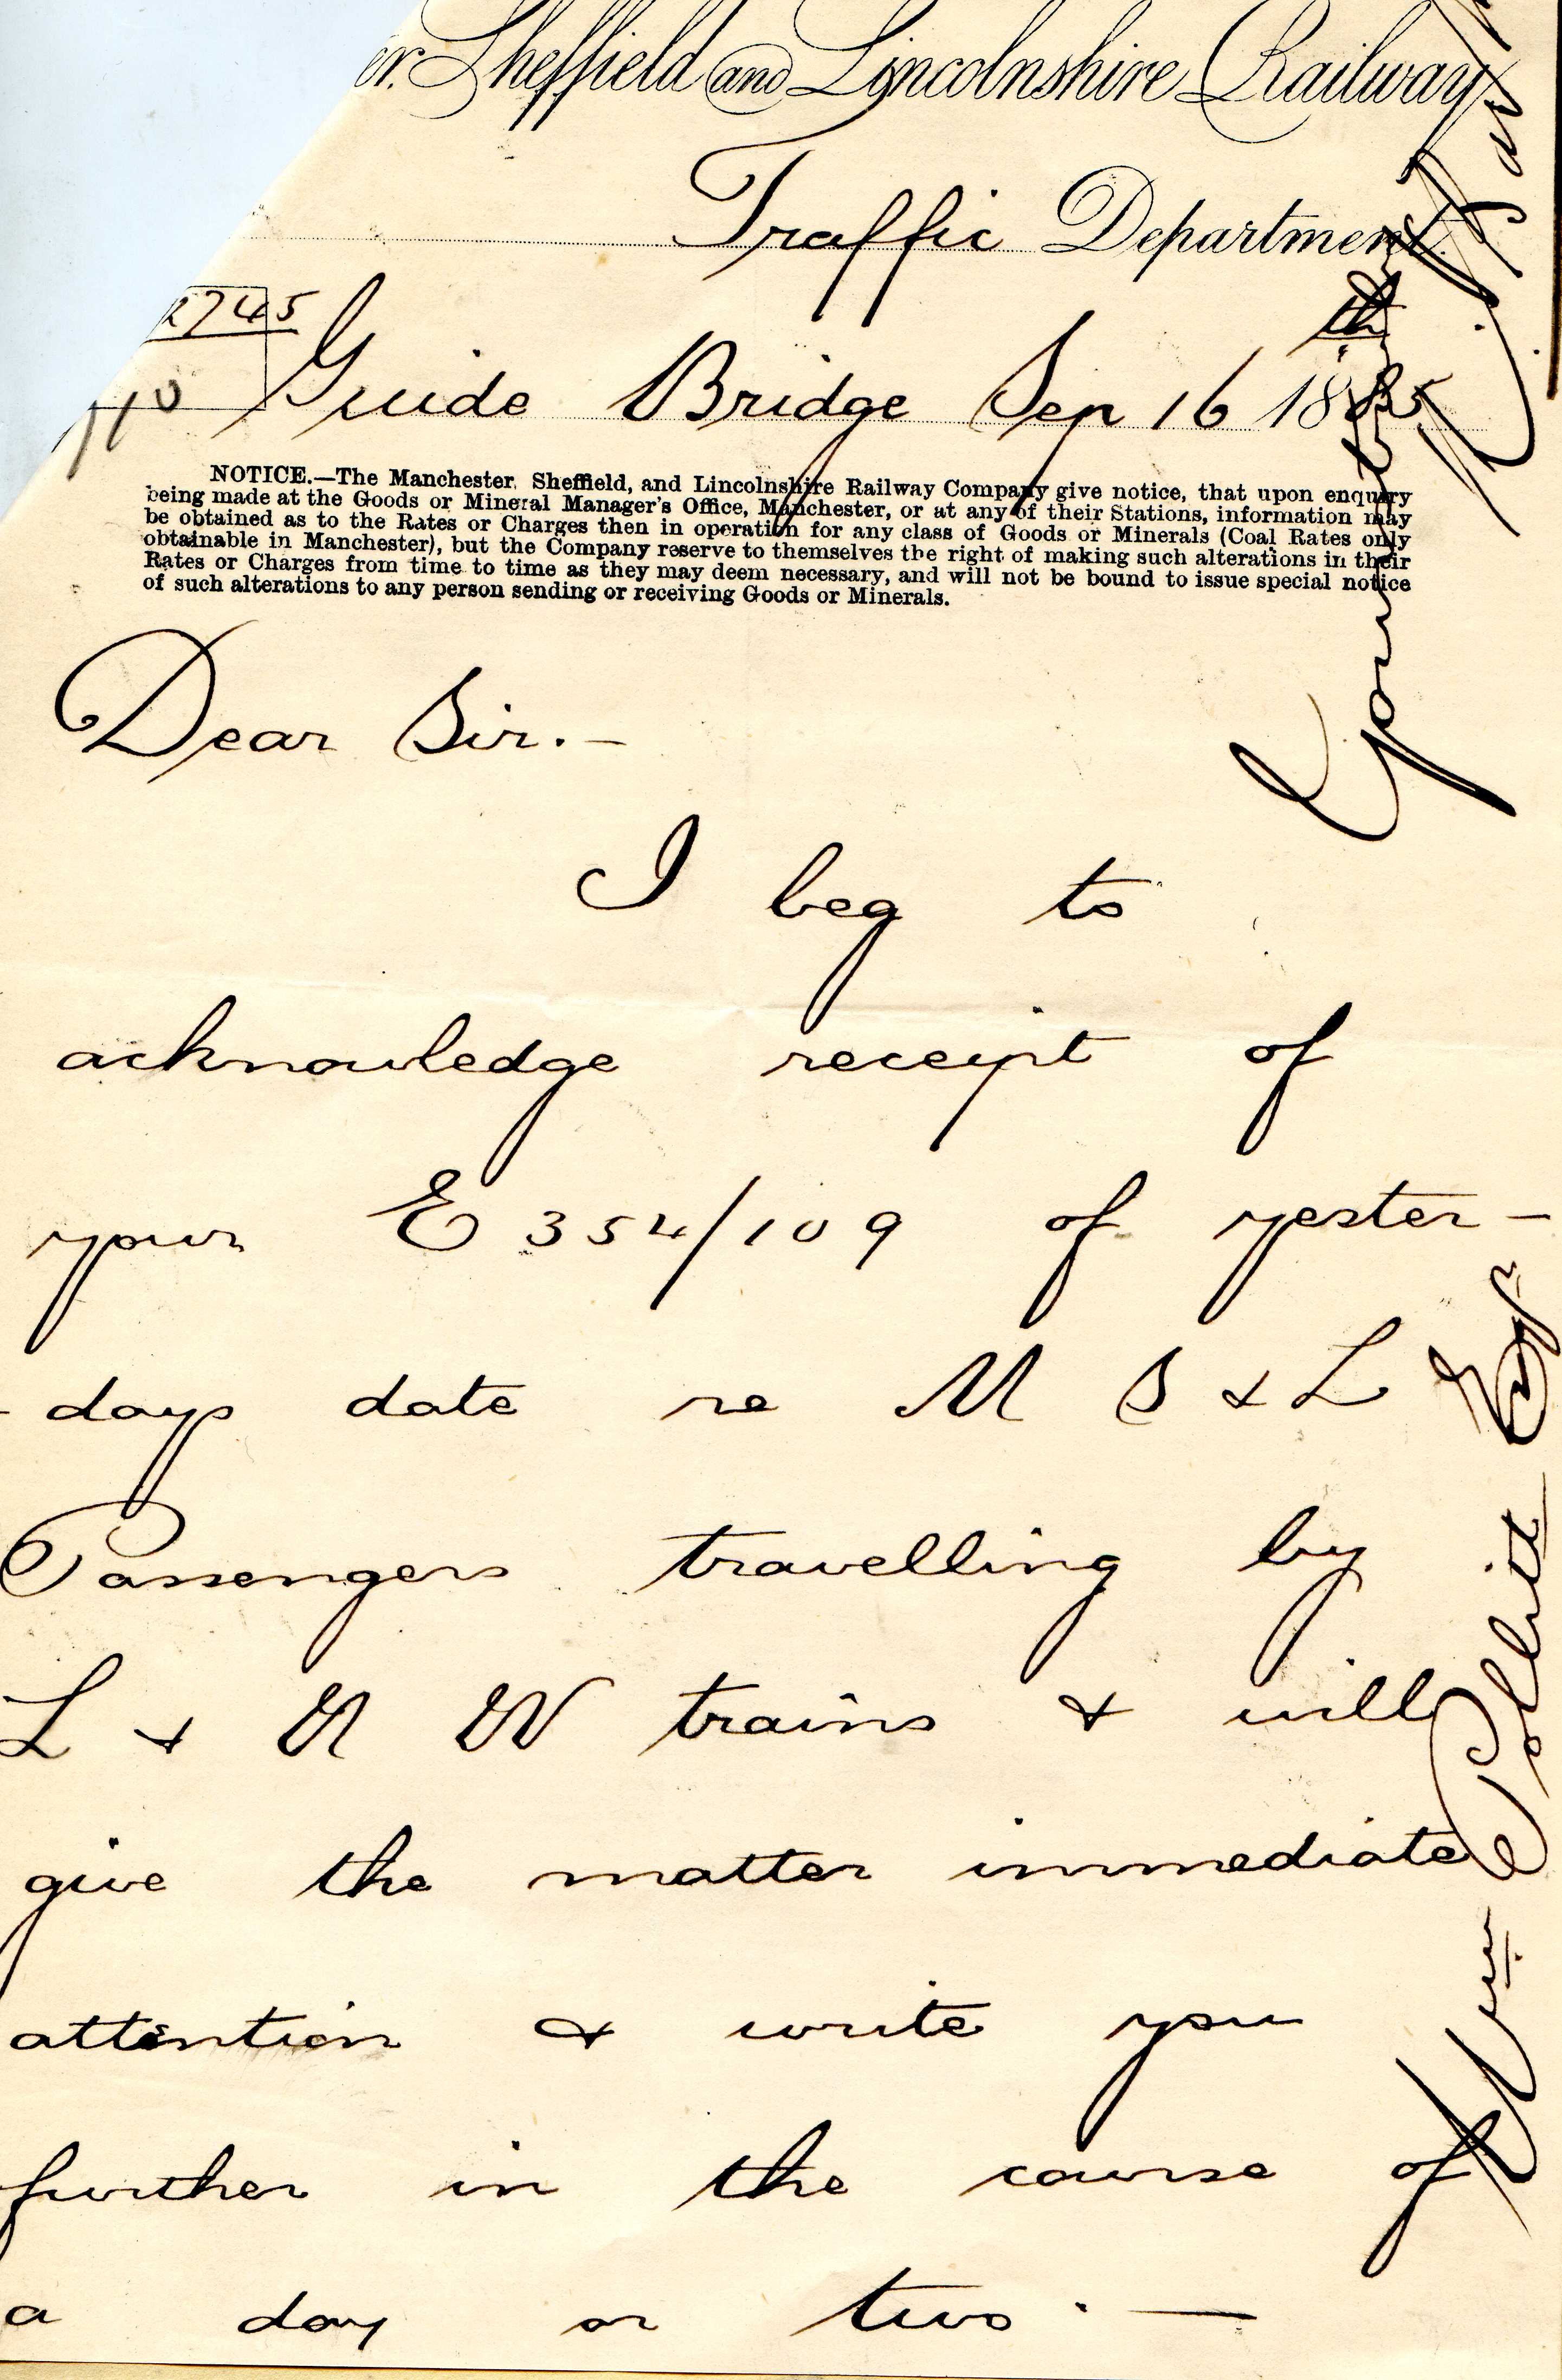 er. Sheffield and Lincolnshire Railway
Traffic Department.
2745
Guide Bridge Sep 16th 1885
NOTICE.—The Manchester, Sheffield, and Lincolnshire Railway Company give notice, that upon enquiry
being made at the Goods or Mineral Manager's Office, Manchester, or at any of their Stations, information may
be obtained as to the Rates or Charges then in operation for any class of Goods or Minerals (Coal Rates only
obtainable in Manchester), but the Company reserve to themselves the right of making such alterations in their
Rates or Charges from time to time as they may deem necessary, and will not be bound to issue special notice
of such alterations to any person sending or receiving Goods or Minerals.
Dear Sir.—
I beg to
acknowledge receipt of
your E 354/109 of yester-
-days date re M S & L
Passengers travelling by
L & N W trains & will
give the matter immediate
attention & write you
further in the course of
a day or two.—
Yours truly
Wm Pollitt Esqr